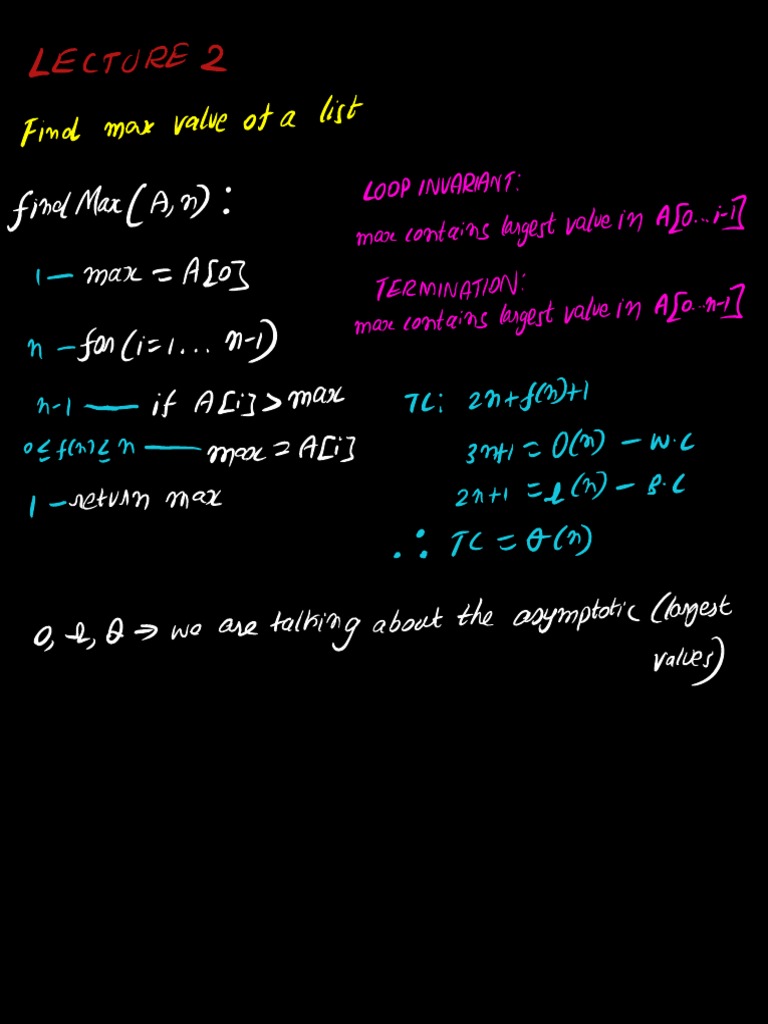 LECTURE 2
Find max value of a list
findMax(A,n):
1 — max = A[0]
n — for(i=1... n-1)
n-1 — if A[i] > max
0 ≤ f(n) ≤ n — max = A[i]
1 — return max
LOOP INVARIANT:
max contains largest value in A[0...i-1]
TERMINATION:
max contains largest value in A[0...n-1]
TC: 2n+f(n)+1
3n+1 = O(n) - W.C
2n+1 = Ω(n) - B.C
∴ TC = θ(n)
O, Ω, θ → we are talking about the asymptotic (largest
values)